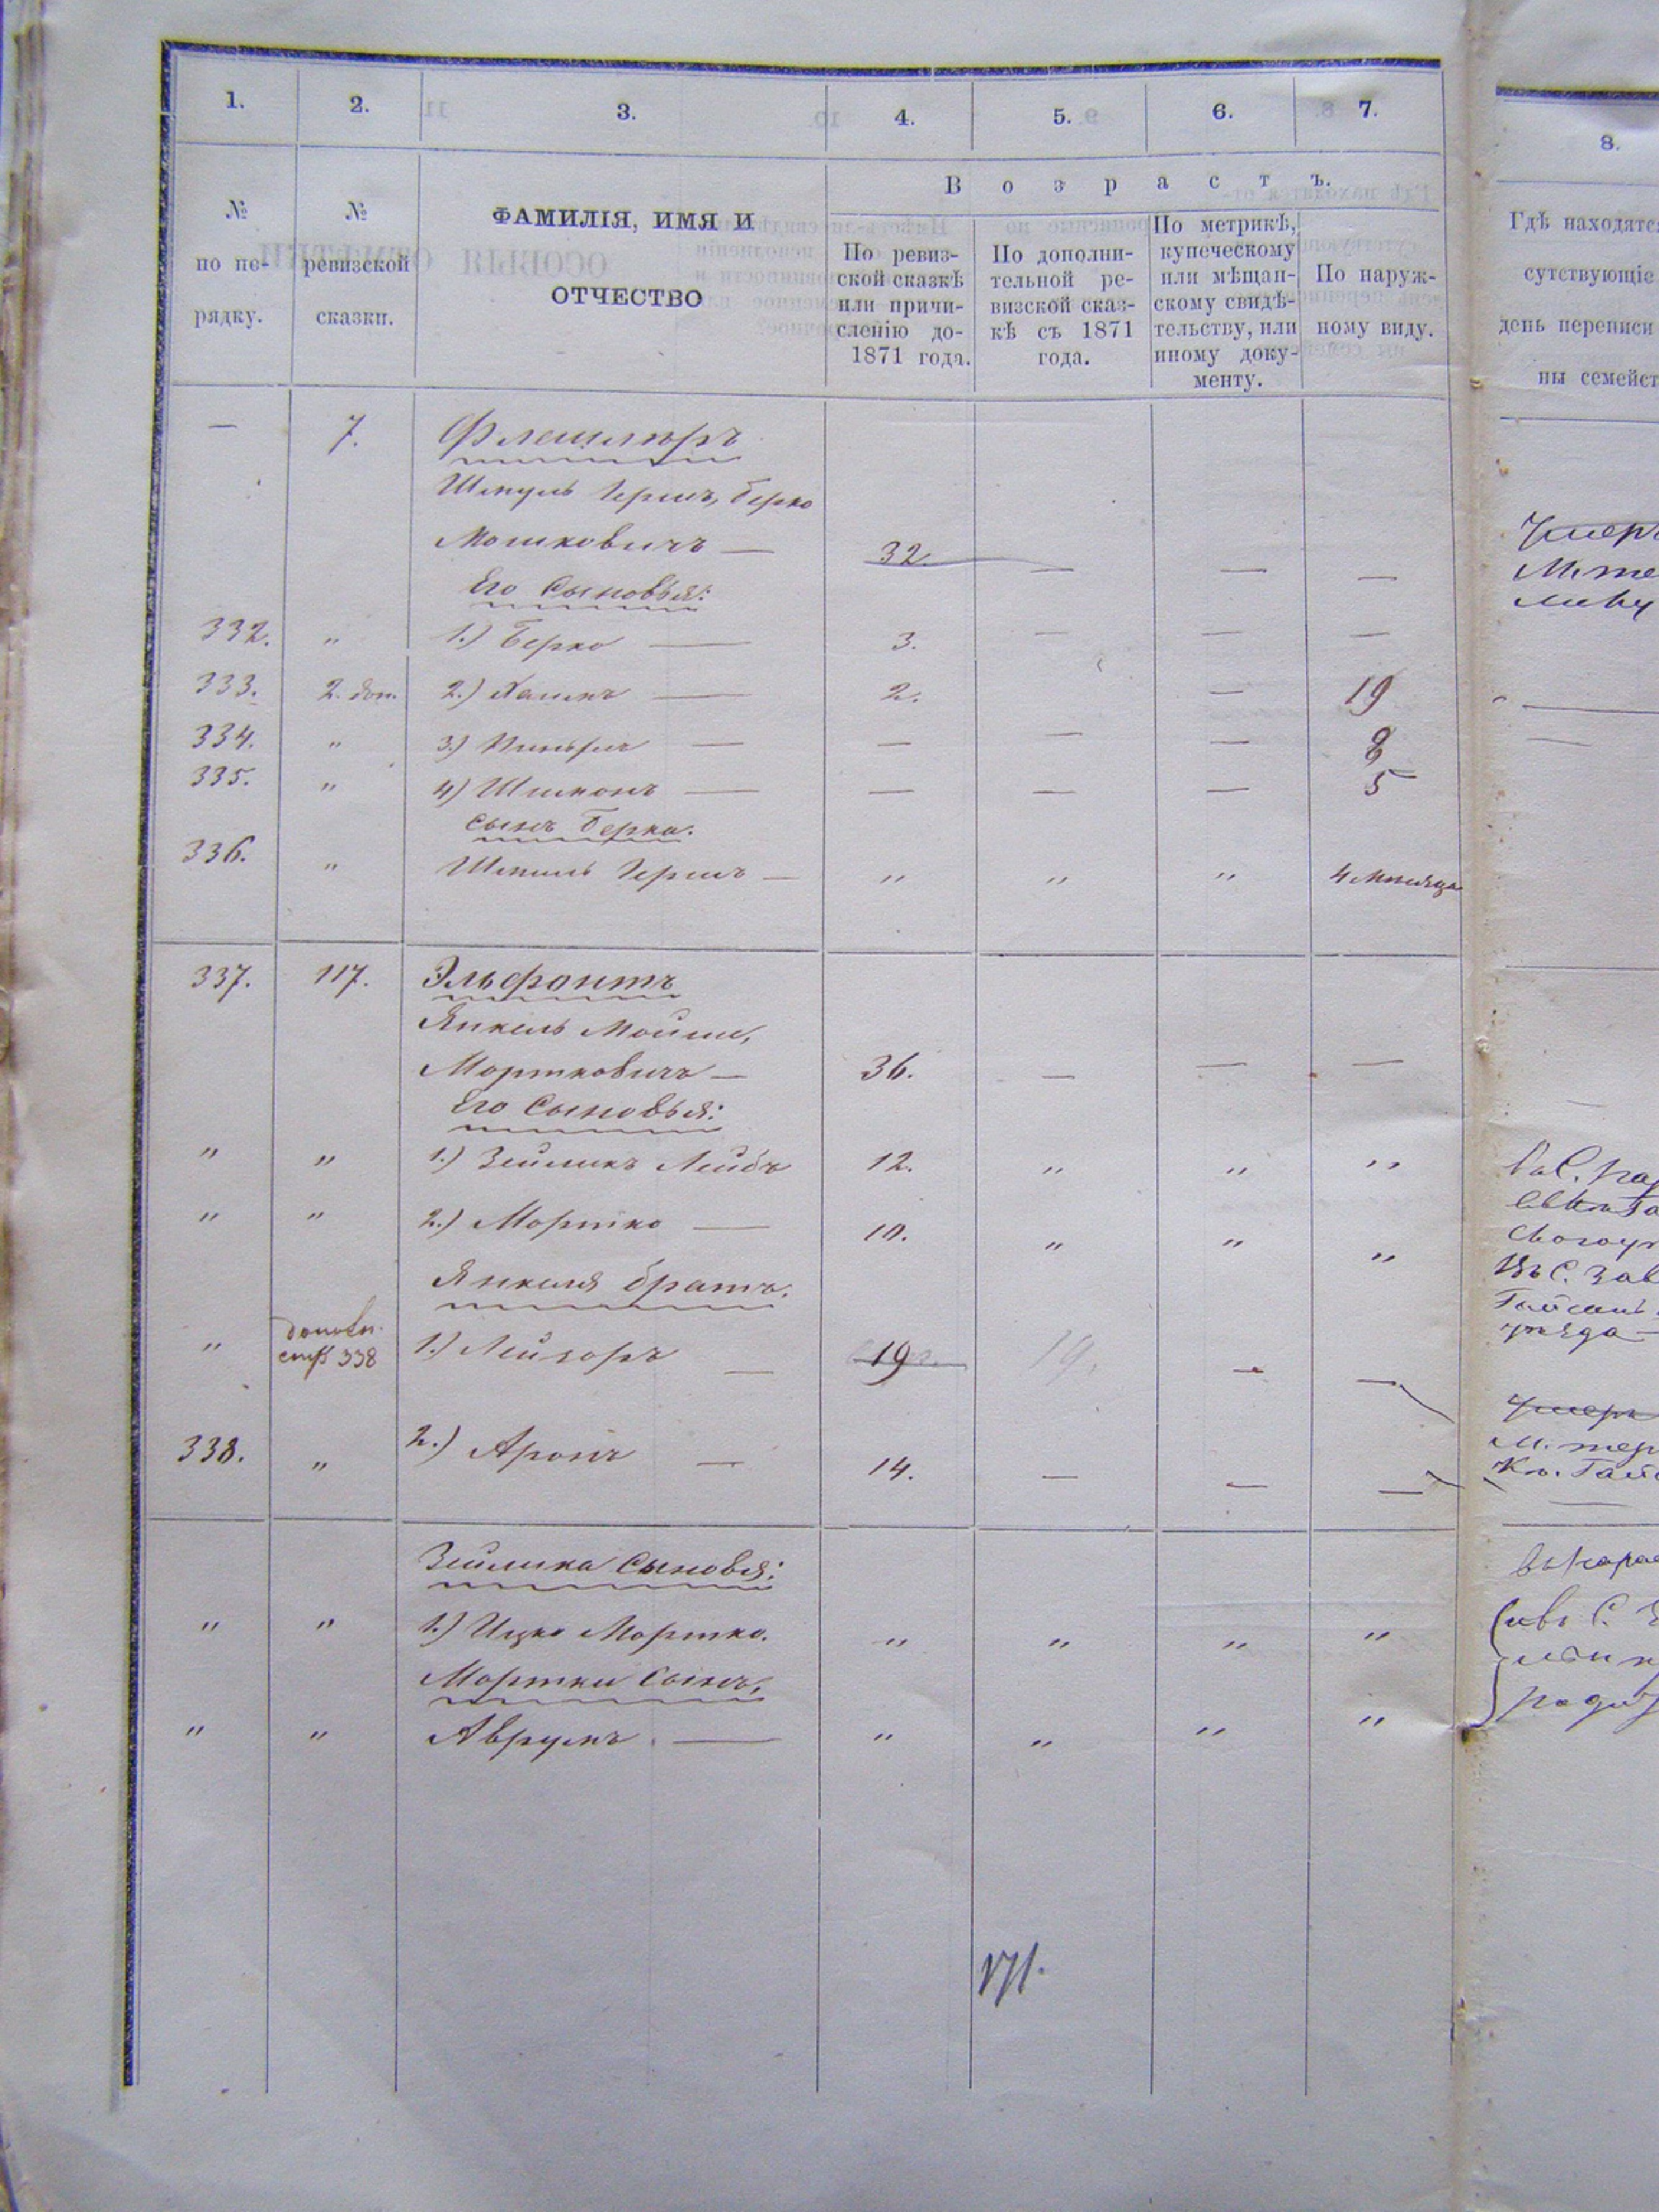 1. 2. 3. 4. 5. 6. 7.
8.
№ по по-рядку.
№ ревизской сказки.
ФАМИЛІЯ, ИМЯ И
ОТЧЕСТВО
Возрастъ.
По ревиз-
ской сказкѣ
или причи-
сленію до-
1871 года.
По дополни-
тельной ре-
визской сказ-
кѣ съ 1871
года.
По метрикѣ,
купеческому
или мѣщан-
скому свидѣ-
тельству, или
иному доку-
менту.
По наруж-
ному виду.
Гдѣ находятс
сутствующіе
день переписи
ны семейст
— 7.
Шмуль Гершъ, Берко
Мошковичъ — 32. — — —
Его Сыновья:
332. " 1.) Берко — 3. — — —
333. 2. доп. 2.) Хаимъ — 2. — 19
334. " 3.) — — — — 8
335. " 4) Шимонъ — — — — 5
Сынъ Берка.
336. " Шмуль Гершъ — " " " 4 мѣсяца
337. 117. Эльфонтъ
Янкель Мойше,
Мортковичъ — 36. — — —
Его Сыновья:
" " 1.) Зейликъ Лейбъ 12. " " "
" " 2.) Мортко — 10. " " "
Янкеля братъ.
" 338 1.) Лейзоръ — 19 19. — —
338. " 2.) Аронъ — 14. — — —
Зейлика Сыновья:
" " 1.) Ицко Мортко. " " " "
Мортки Сынъ,
" " Аврумъ — " " " "
171.